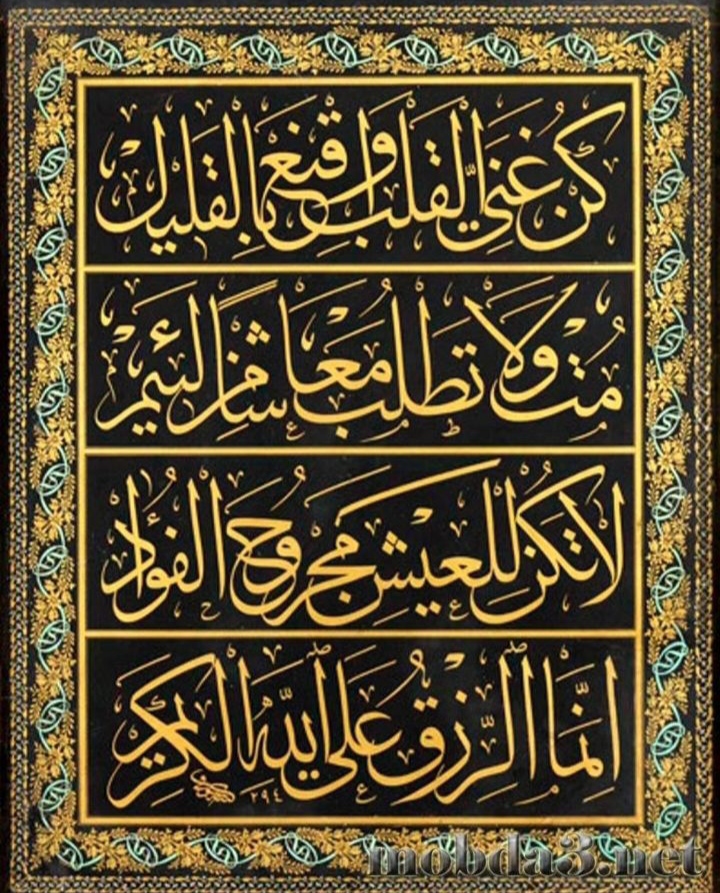 كن غني القلب واقنع بالقليل
مت ولا تطلب معاشا من لئيم
لا تكن للعيش مجروح الفؤاد
إنما الرزق على الله الكريم
٢٩٤
mobda3.net